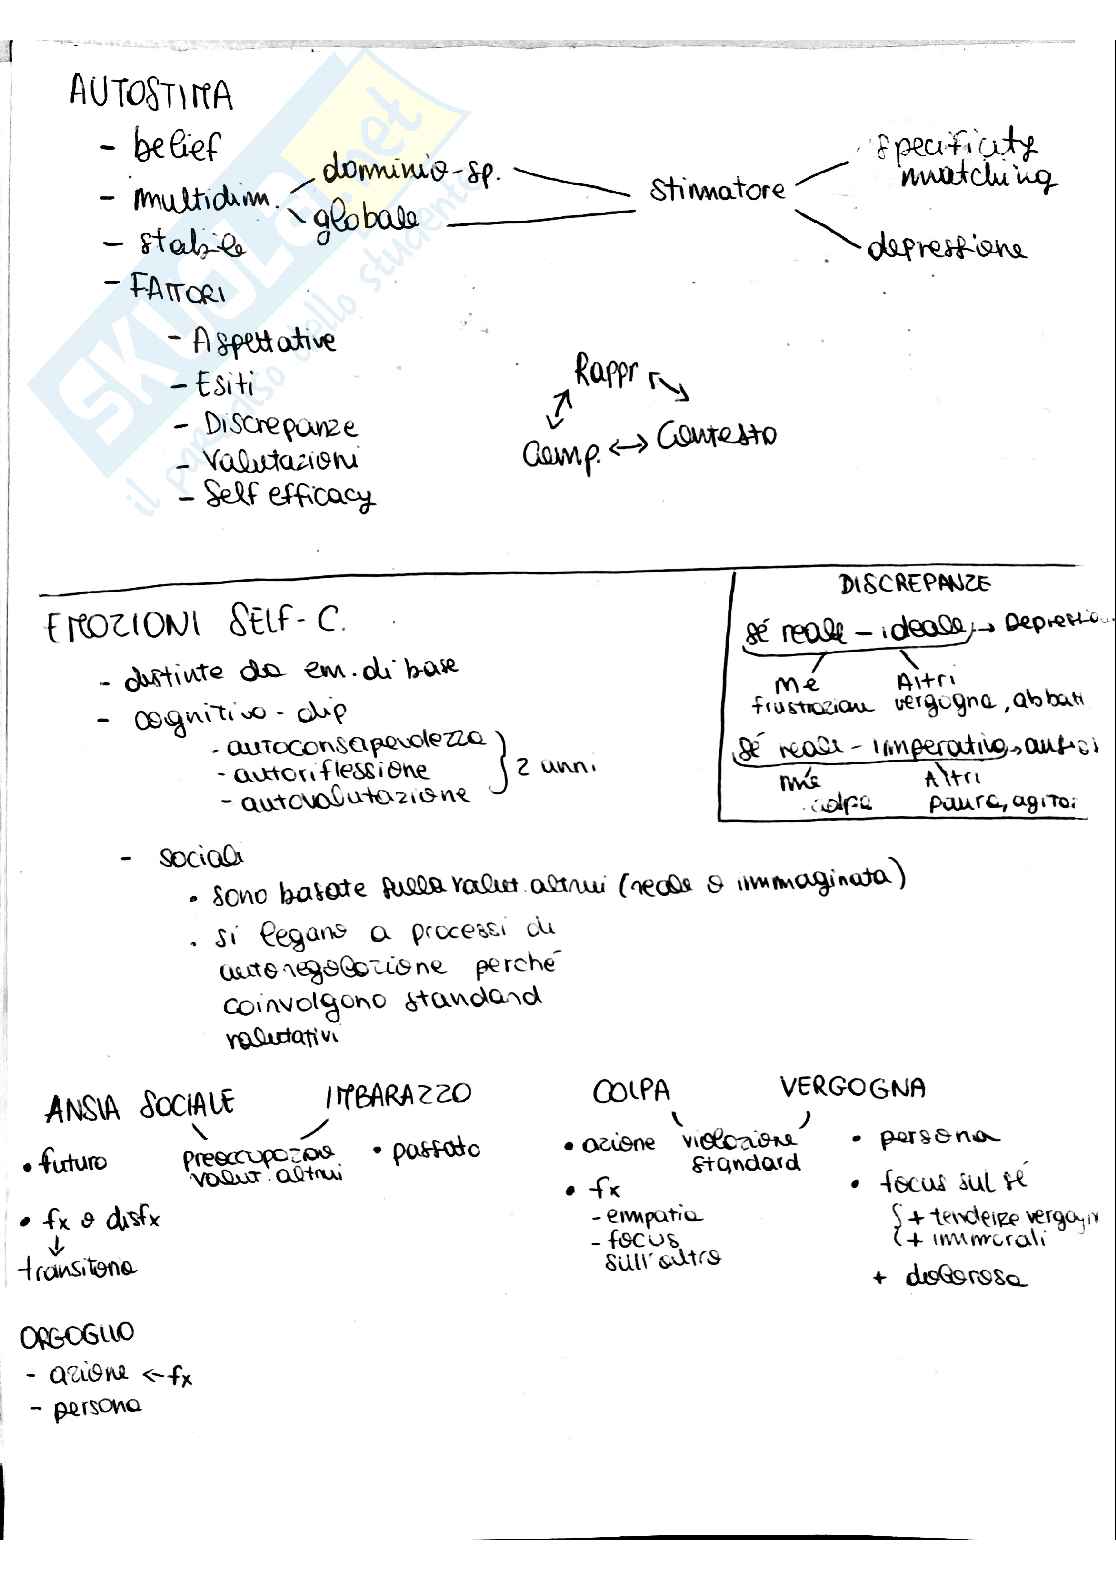 AUTOSTIMA
- belief
- multidim.
dominio-sp.
globale
stimatore
specificity
matching
depressione
- stabile
- FATTORI
- Aspettative
- Esiti
- Discrepanze
- Valutazioni
- Self efficacy
Rappr
Comp. ↔ Contesto
SKUOLA.net
il paradiso dello studente
EMOZIONI SELF-C.
- distinte da em. di base
- cognitivo-dip
- autoconsapevolezza
- autoriflessione
- autovalutazione
2 anni
DISCREPANZE
sé reale - ideale → Depressio
me
Altri
frustrazion
vergogna, abbatt
sé reale - imperativo → ansia
me
Altri
colpa
paura, agitaz
- sociali
• sono basate sulla valut. altrui (reale o immaginata)
• si legano a processi di
autoregolazione perché
coinvolgono standard
valutativi
ANSIA SOCIALE
IMBARAZZO
• futuro
preoccupazione
valut. altrui
• passato
• fx o disfx
↓
transitoria
COLPA
VERGOGNA
• azione
violazione
standard
• persona
• fx
- empatia
- focus
sull'altro
• focus sul sé
+ tendenze vergogn
+ immorali
+ dolorosa
ORGOGLIO
- azione ← fx
- persona